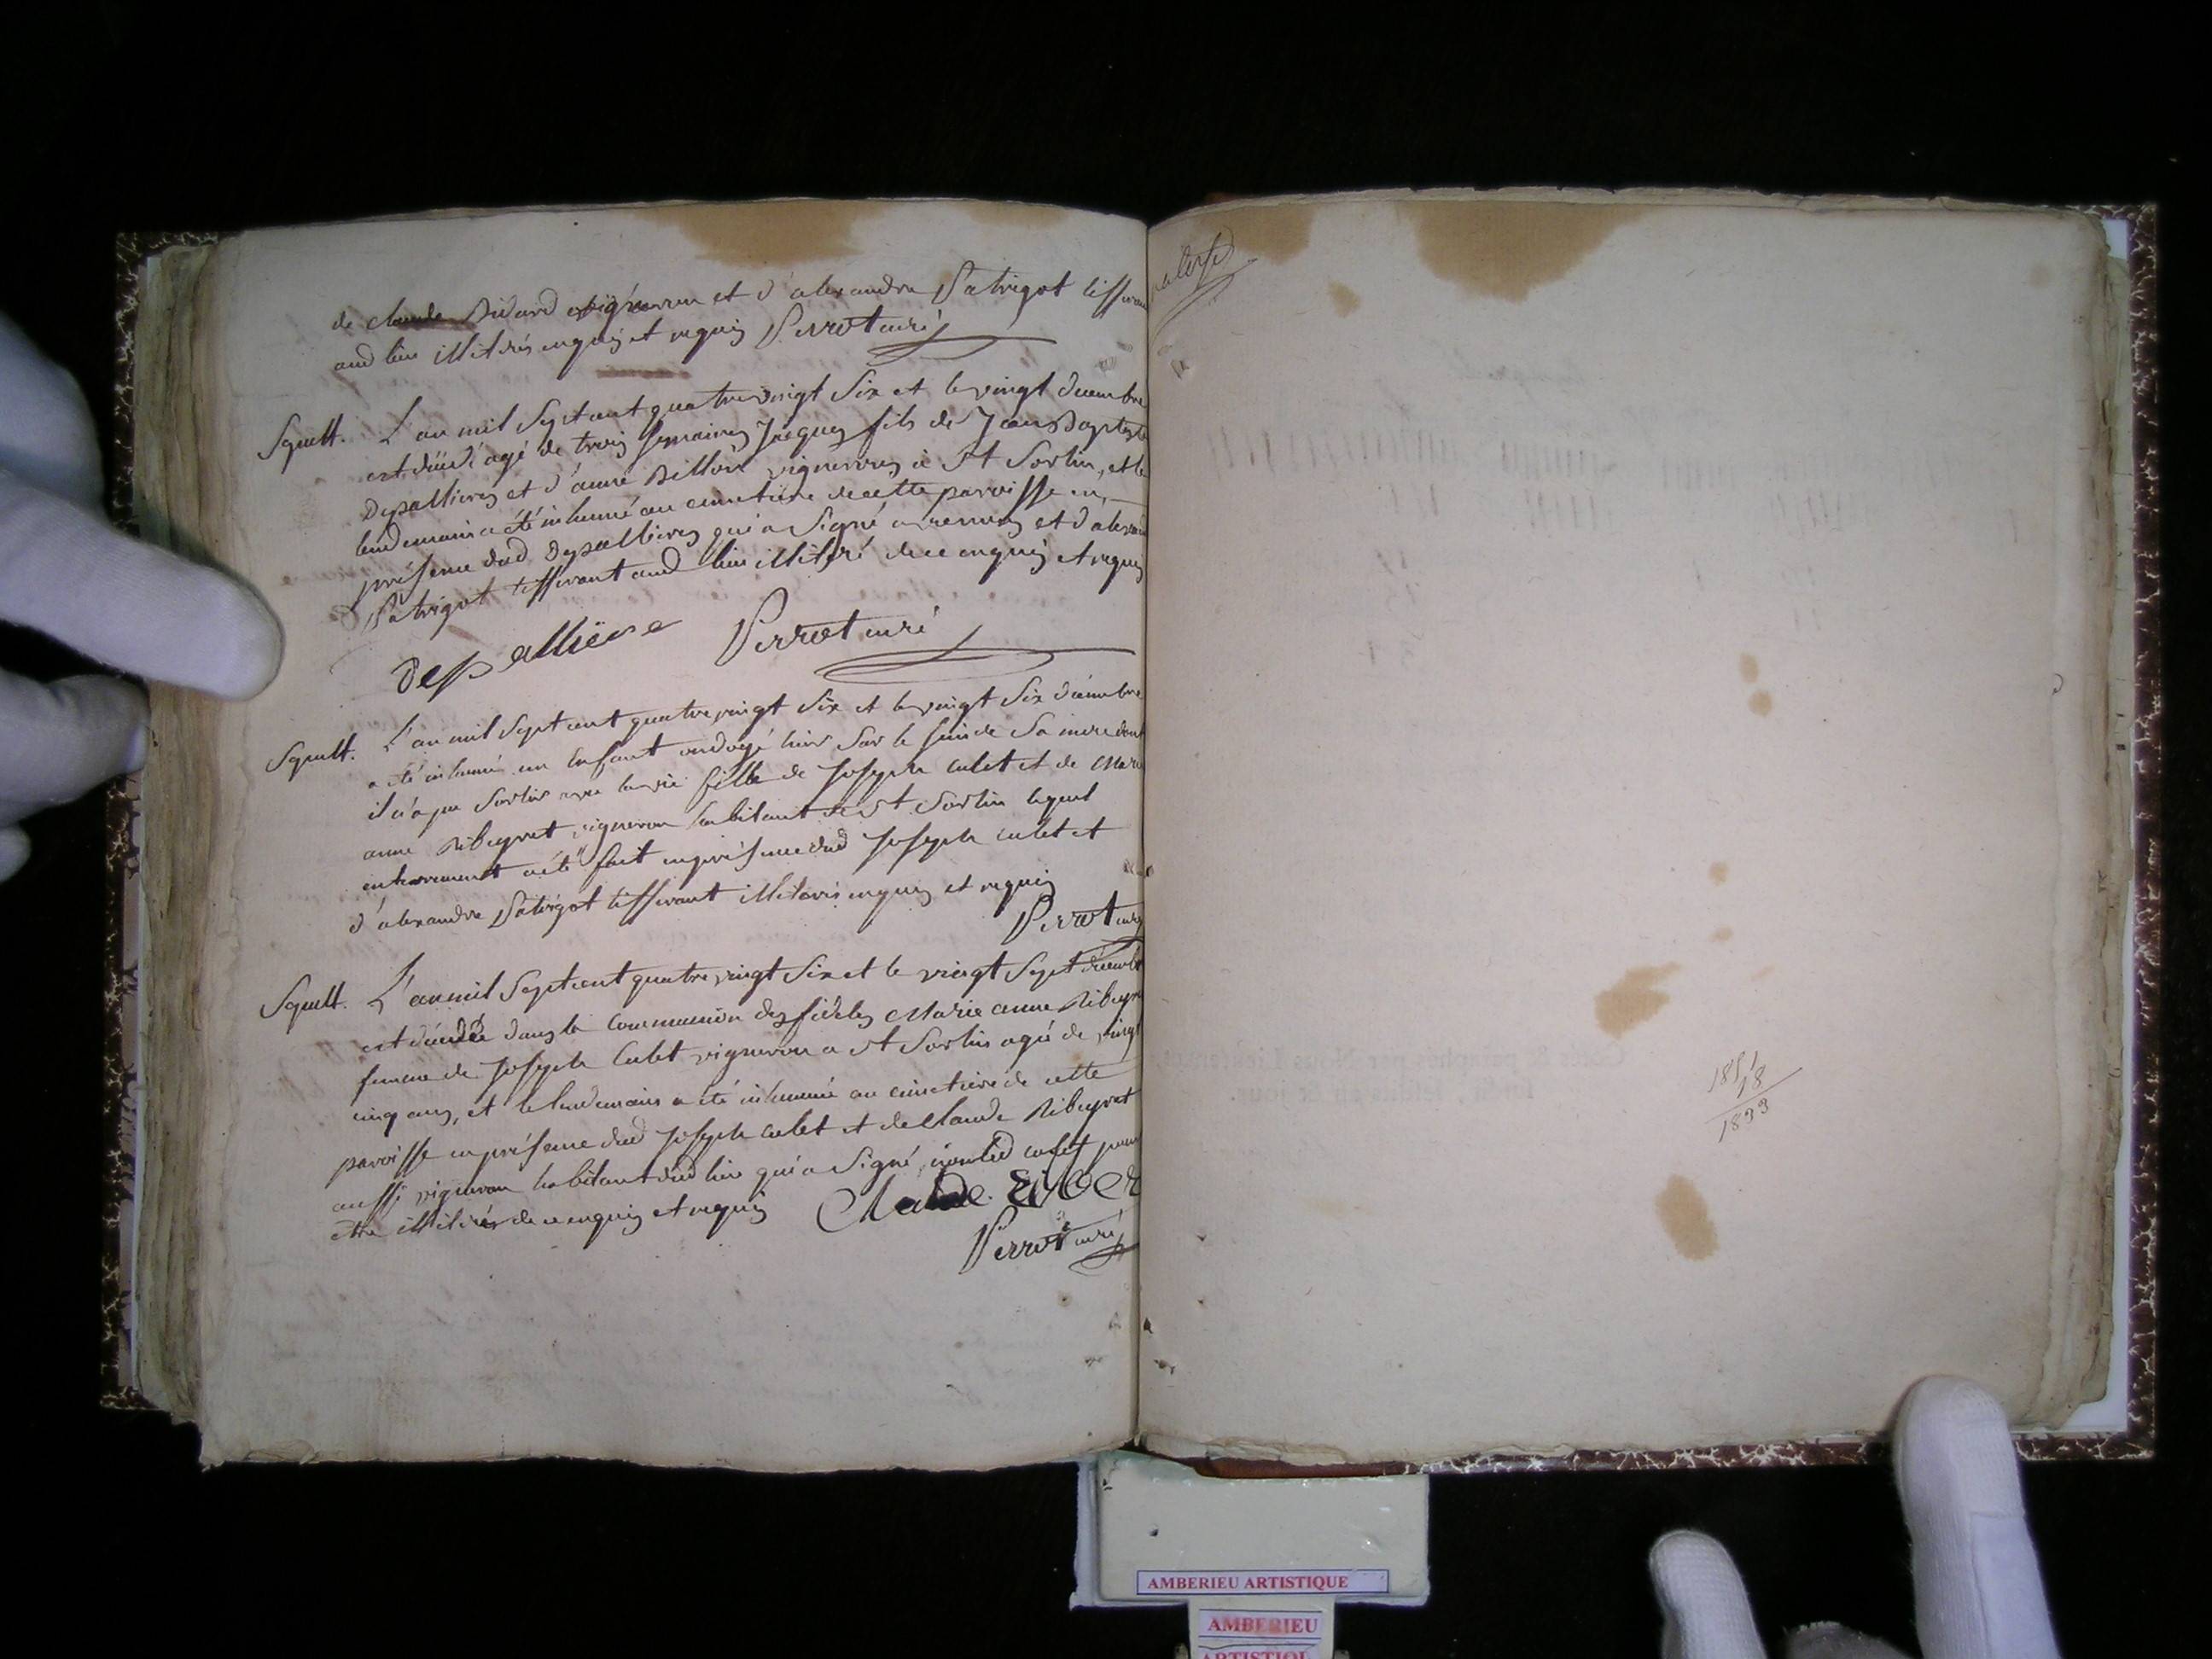 de claude Didard vigneron et d'alexandre Patrigot tisserant
aud lieu illiterés enquis et requis Perrot curé
Sepult. L'an mil Sept cent quatre vingt Six et le vingt decembre
est décédé agé de trois Semaines Jacques fils de Jean Baptiste
Depallieres et d'anne Billon vignerons à St Sorlin, et le
lendemain a été inhumé au cimetiere de cette paroisse en
présence dud Depallieres qui a Signé et d'alexandre
Patrigot tisserant aud lieu illitéré de ce enquis et requis
depalliere Perrot curé
Sepult. L'an mil Sept cent quatre vingt Six et le vingt Six décembre
a été inhumé un Enfant ondoyé hier Sur le Sein de Sa mere dont
il n'a pu Sortir avec la vie fille de Joseph culet et de Marie
anne Ribeyret vigneron habitant de St Sorlin lequel
enterrement a été fait en présence dud Joseph culet et
d'alexandre Patrigot tisserant illiterés enquis et requis
Perrot curé
Sepult. L'an mil Sept cent quatre vingt Six et le vingt Sept décembre
est décédée dans la Communion des fidéles Marie anne Ribeyret
femme de Joseph Culet vigneron a St Sorlin agée de vingt
cinq ans, et le lendemain a été inhumée au cimetiere de cette
paroisse en présence dud Joseph culet et de Claude Ribeyret
aussi vigneron habitant dud lieu qui a Signé, non led culet pour
etre illiteré de ce enquis et requis Claude
Perrot curé
1851
18
1833
AMBERIEU ARTISTIQUE
AMBERIEU
ARTISTIQUE